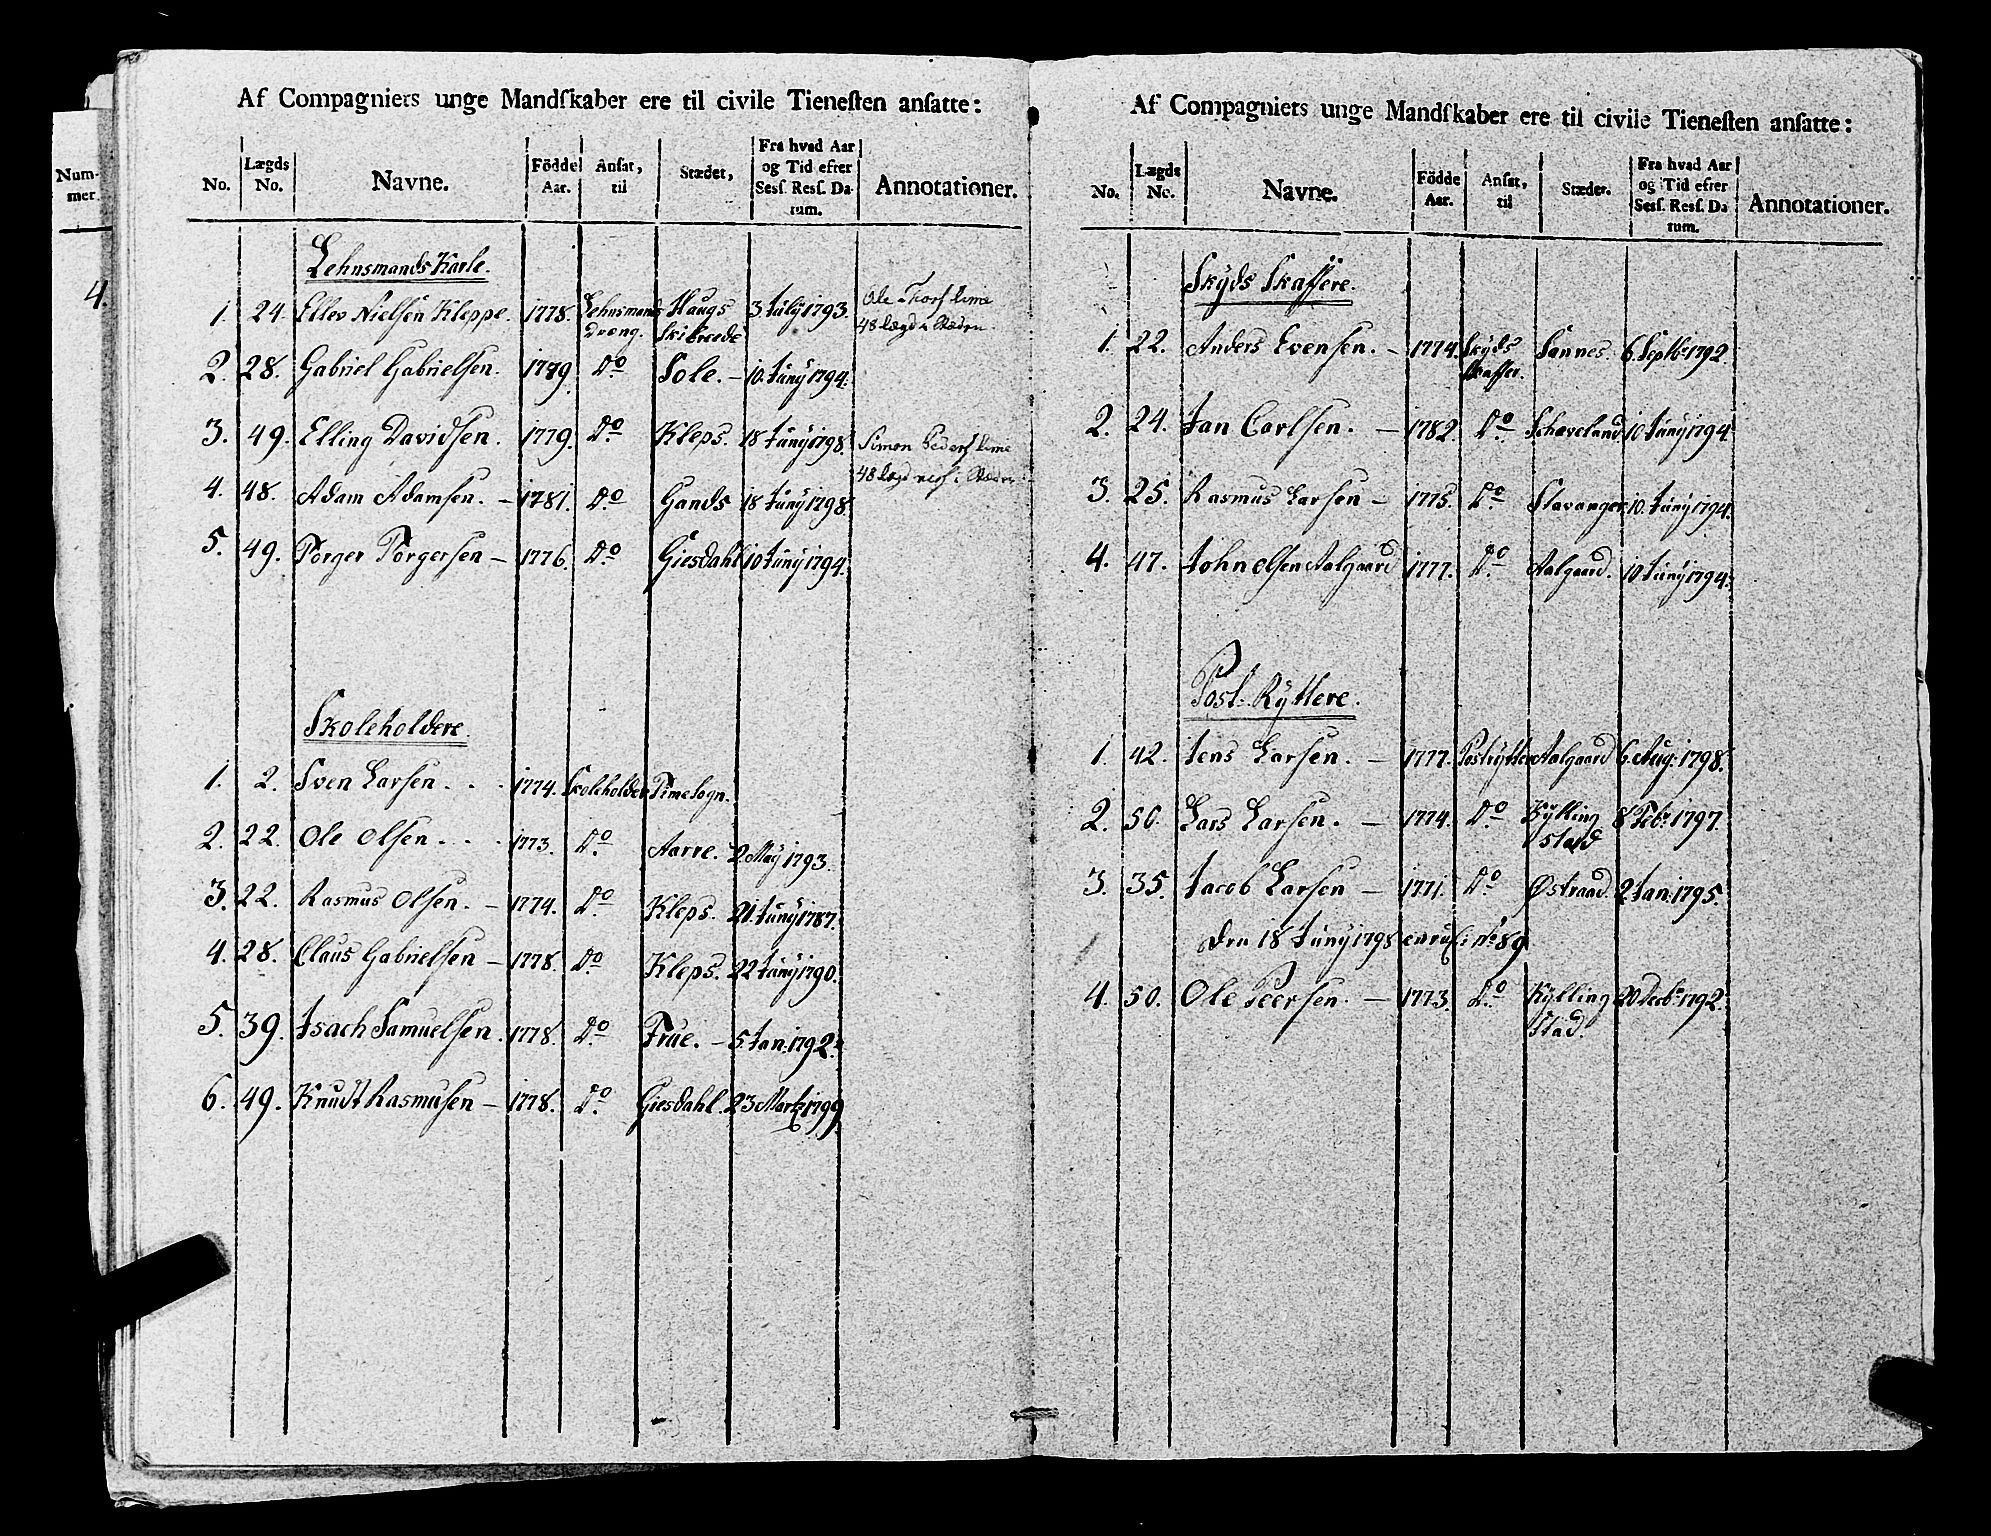 Num-
mer.
4.
Af Compagniers unge Mandſkaber ere til civile Tieneſten anſatte:
No. Lægds No. Navne. Födde Aar. Anſat, til Stædet, Fra hvad Aar og Tid efter Sesſ. Resſ. Datum. Annotationer.
Lehnsmands Karle.
1. 24. Ellev Nielsen Kleppe. 1778. Lehnsmands dreng. Haugs Skibrede 3 July 1793. Ole
48 Lægd
2. 28. Gabriel Gabrielsen. 1779. Do Sole. – 10. Juny 1794.
3. 49. Elling Davidsen. 1779. Do Kleps. 18 Juny 1798. Simon
4. 48. Adam Adamsen. – 1781. Do Gands 18 Juny 1798. 48 Lægd
5. 49. Torger Torgersen – 1776. Do Giesdahl 10 Juny 1794.
Skoleholdere.
1. 2. Sven Larsen. . . 1774. Skoleholder Time Sogn.
2. 22. Ole Olsen. . . 1773. Do. Aarre. 2 May 1793.
3. 22. Rasmus Olsen. – 1774. Do. Kleps. 21 Juny 1787.
4. 28. Claus Gabrielsen – 1778. Do Kleps. 22 Juny 1790.
5. 39. Isach Samuelsen. 1778. Do. Frue. – 5 Jan: 1792.
6. 49. Knudt Rasmusen – 1778. Do. Giesdahl. 23 Martz 1799
Af Compagniets unge Mandſkaber ere til civile Tieneſten anſatte:
No. Lægds No. Navne. Födde Aar. Anſat, til Stæder. Fra hvad Aar og Tid efter Sesſ. Resſ. Datum. Annotationer.
Skyds Skaffere.
1. 22. Anders Evensen. – 1774. Skyds skaffer. Sannes. 6 Septbr 1792
2. 24. Jan Carlsen. – 1782. Do. Schaveland 10 Juny 1794.
3. 25. Rasmus Larsen – 1775. Do. Stavanger 10. Juny 1794.
4. 47. John Olsen Aalgaard 1777. Do. Aalgaard. 10 Juny 1794.
Post-Ryttere.
1. 42. Jens Larsen. – 1777. Postrytter Aalgaard 6. Aug: 1798.
2. 50. Lars Larsen. – 1774. Do Kyllingstad 8 Febr 1797.
3. 35. Jacob Larsen – 1771. Do Østraad. 2 Jan: 1795.
den 18 Juny 1798 No 89
4. 50. Ole Peersen. – 1773. Do. Kylling Stad. 20 Decbr 1792.